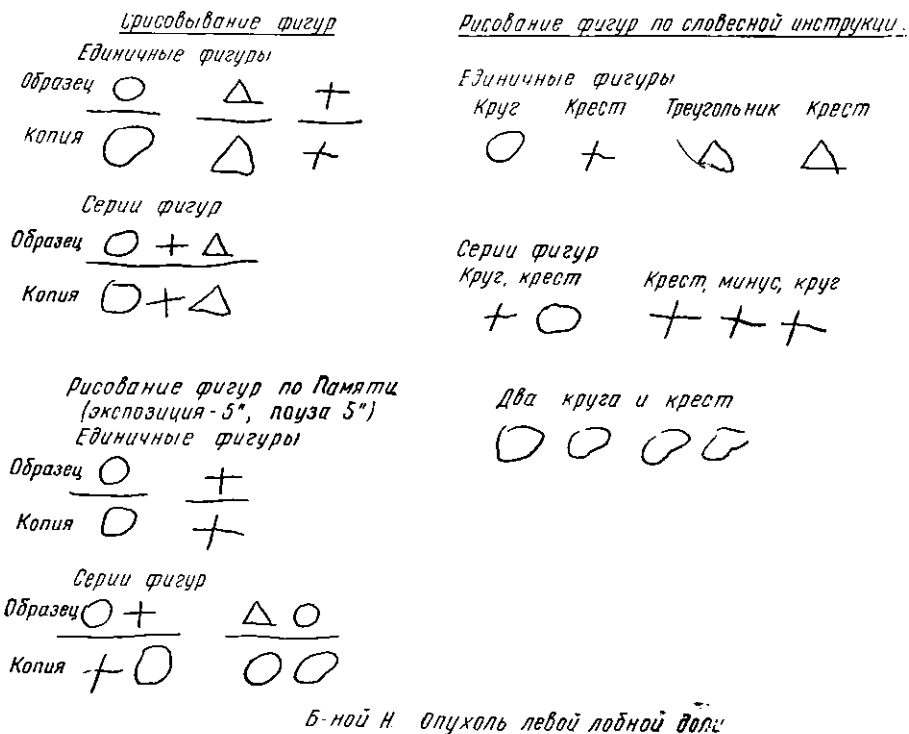 Срисовывание фигур
Единичные фигуры
Образец
Копия
Серии фигур
Образец
Копия
Рисование фигур по Памяти
(экспозиция - 5", пауза 5")
Единичные фигуры
Образец
Копия
Серии фигур
Образец
Копия
Рисование фигур по словесной инструкции.
Единичные фигуры
Круг Крест Треугольник Крест
Серии фигур
Круг, крест Крест, минус, круг
Два круга и крест
Б-ной Н. Опухоль левой лобной доли